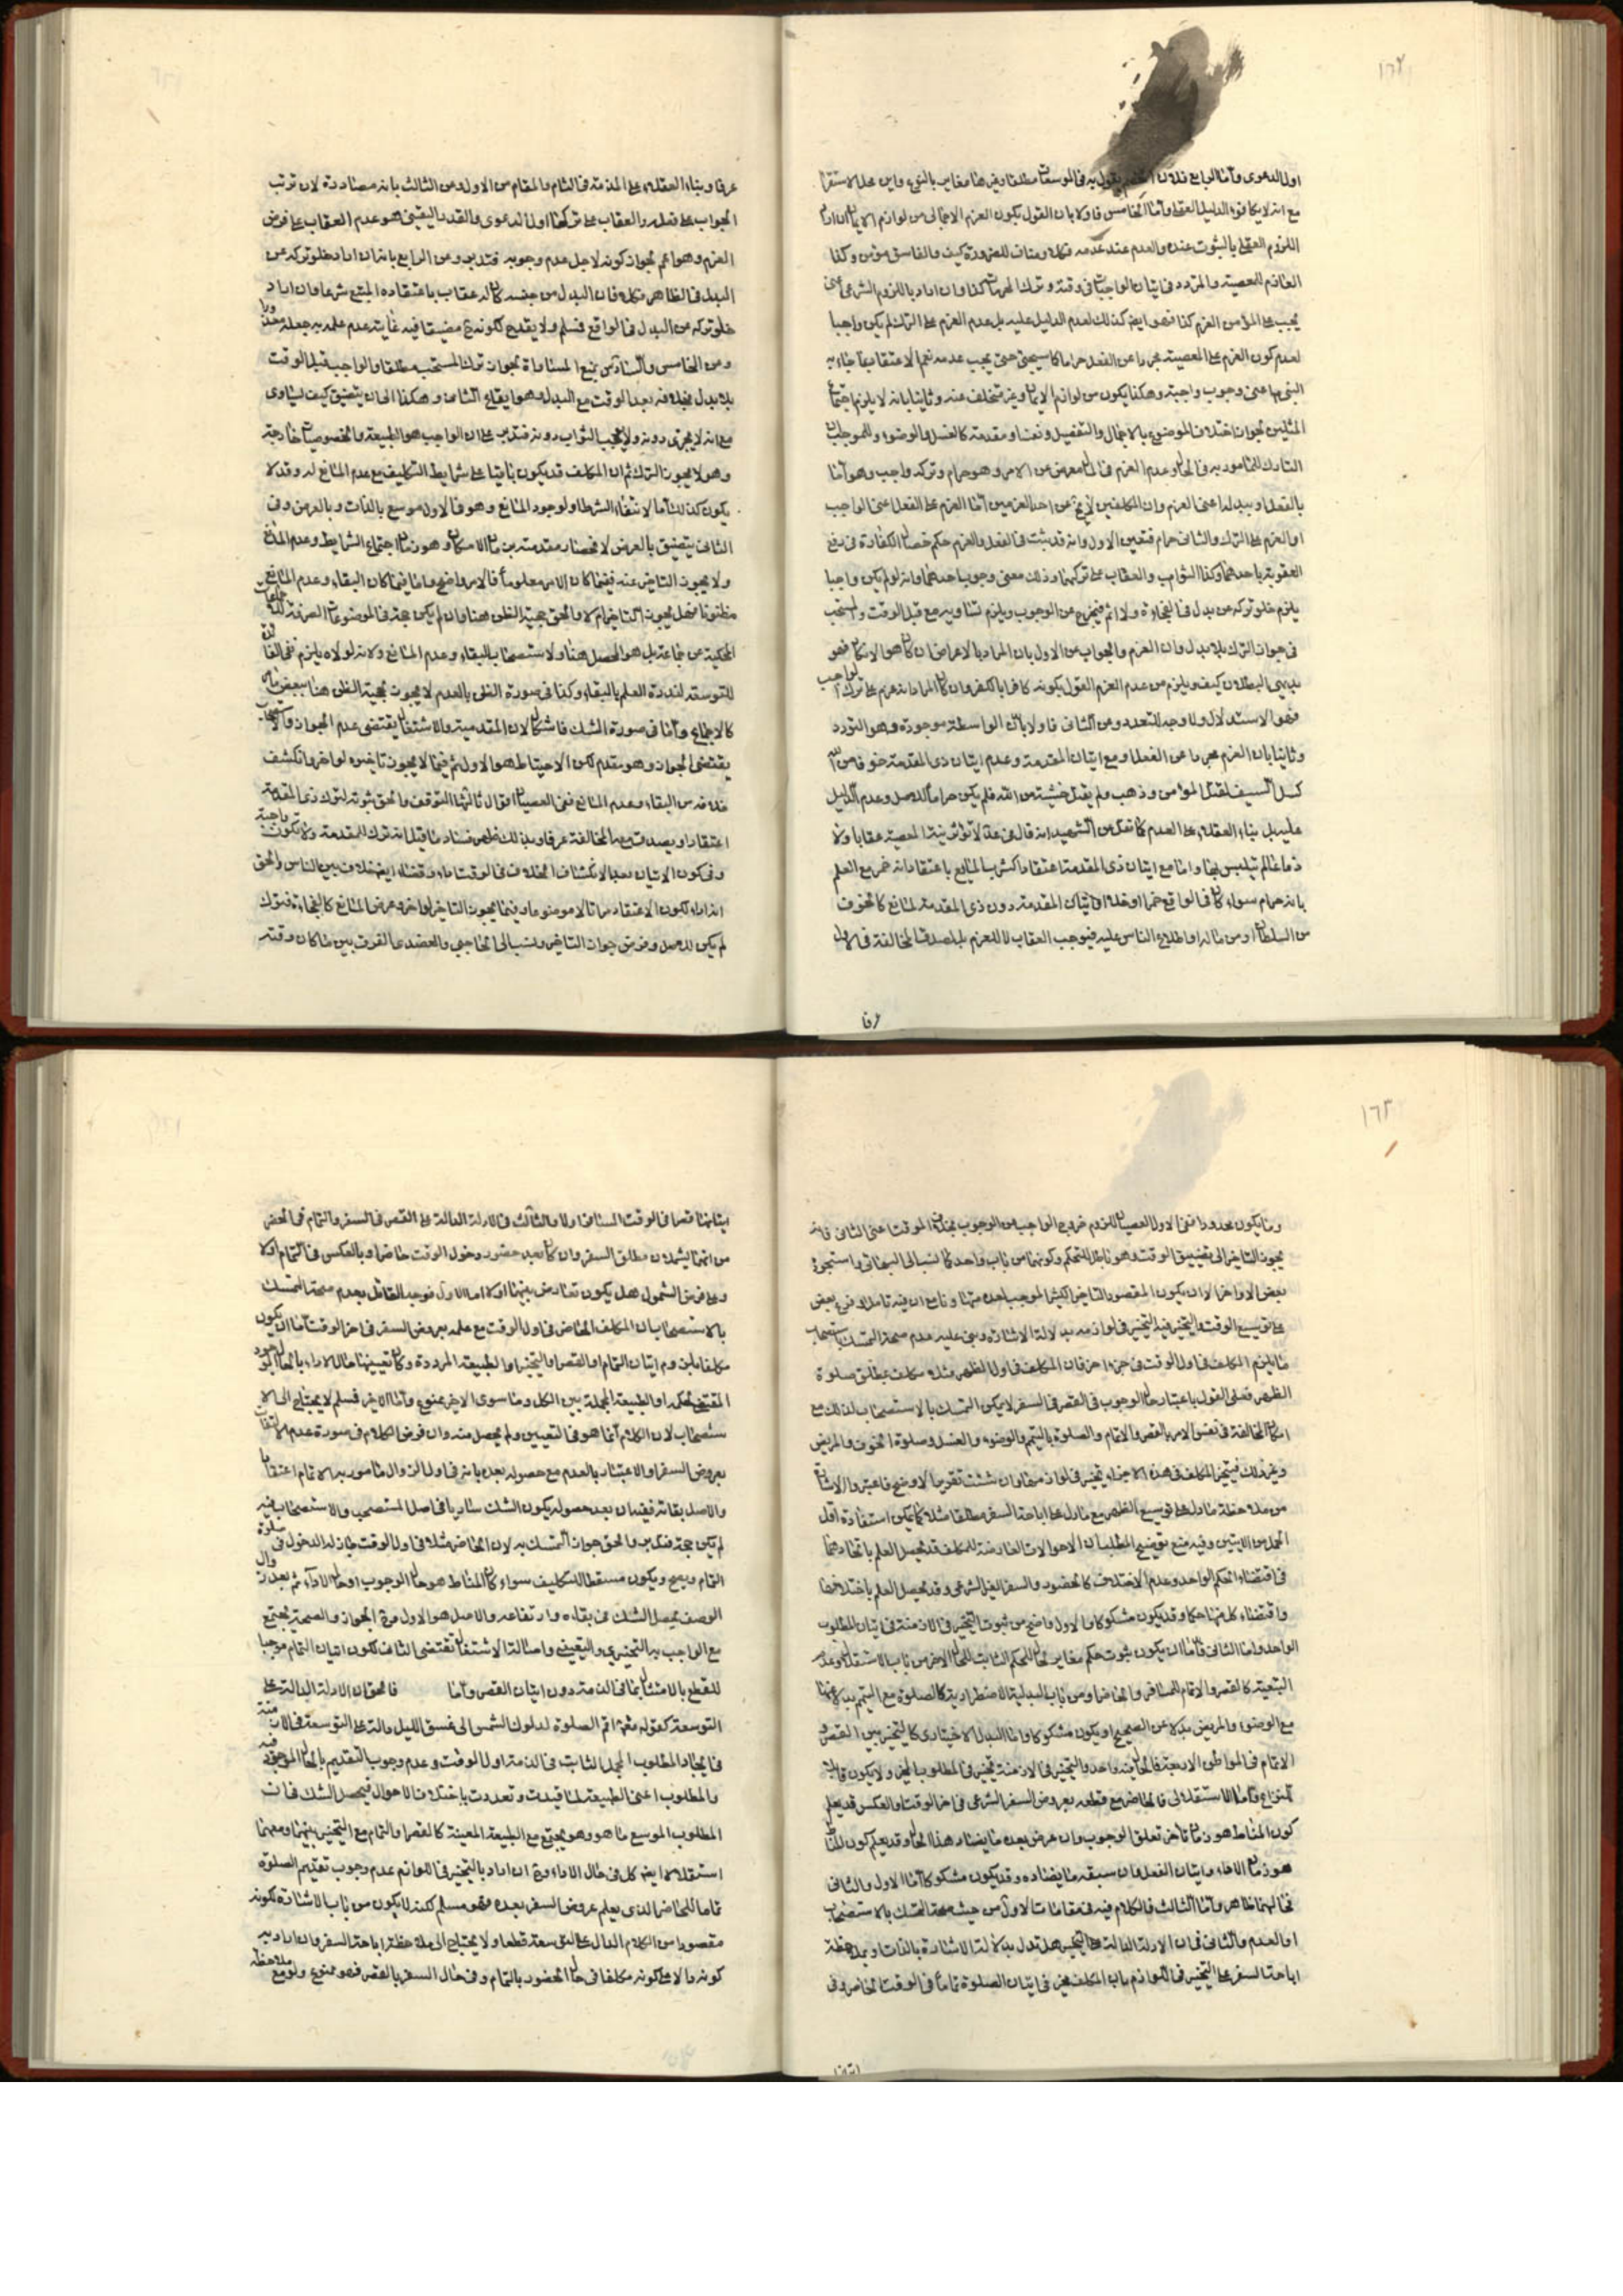 ١٦٢
اول الدعوى واما الرابع فلان يقول به فى الموسعات مطلقا وغير هنا مغاير بالنوع واين محل الاستقرا
مع انه لا يكافؤه الدليل العقلى واما الخامس فاولا بان القول بكون العزم الاجمالى من لوازم الايمان ان اراد
اللزوم العقلى بالثبوت عنده والعدم عند عدمه فكلا ومناف للضرورة كيف والفاسق مؤمن وكذا
العازم للمعصية والمتردد فى اتيان الواجبات فى وقته وترك المحرمات كذا وان اراد باللزوم الشرعى
يجب على المؤمن العزم كذا فهو ايضا كذلك لعدم الدليل عليه بل عدم العزم على الترك لم يكن واجبا
لعدم كون العزم على المعصية مجردا عن الفعل حراما كما سيجئ حتى يجب عدمه نعم الاعتقاد بما جاء به
النبى بها عنى وجوب واجبة وهكذا يكون من لوازم الايمان وغير متخلف عنه وثانيا بانه لا يلزم اجتماع
المثلين لجواز اختلاف الموضوع بالاجمال والتفصيل ونفسا ومقدمة كالغسل والوضوء وللموجبات
التارك للمامور به فى الحال وعدم العزم فى المآل معرض عن الامر وهو حرام وتركه واجب وهو اما
بالفعل او ببدله اعنى العزم وان المكلفين لا يخ عن احد العزمين اما العزم على الفعل اعنى الواجب
او العزم على الترك والثانى حرام فتعين الاول وانه قد ثبت فى الفعل والعزم حكم خصال الكفارة فى دفع
العقوبة باحدهما وكذا الثواب والعقاب على تركهما وذلك معنى وجوب احدهما وانه لو لم يكن واجبا
يلزم خلو تركه عن بدل فى الفجاءة ولا اثم فيخرج عن الوجوب ويلزم تساويه مع قبل الوقت والمستحب
فى جواز الترك بلا بدل وان العزم والجواب عن الاول بان المراد بالاعراض ان كان هو الانكار فهو
بديهى البطلان كيف ويلزم من عدم العزم القول بكونه كافرا بالكفر وان كان المراد انه عزم على ترك الواجب
فهو الاستدلال ولا وجه للتعدد ومن الثانى فاولا بان الواسطة موجودة وهو التردد
وثانيا بان العزم مجردا عن الفعل او مع ايتان المقدمة وعدم ايتان ذى المقدمة خوفا من الله
كسل السيف لقتل المؤمن وذهب ولم يقتل خشية من الله فلم يكن حراما للاصل وعدم الدليل
عليه بل بناء العقلاء على العدم كما تمكن من الشهيد انه قال فى عد لا تؤثر نية المعصية عقابا ولا
ذما ما لم يتلبس بها واما مع ايتان ذى المقدمة اعتقادا كشرب المايع باعتقاد انه خمر مع العلم
بانه حرام سواء كان فى الواقع خمرا او خلا او اتيان المقدمة دون ذى المقدمة لمانع كالخوف
من السلطان او من ماله او اطلاع الناس عليه فيوجب العقاب لا للعزم بل لصدق المخالفة فى الاول
عرفا
عرفا وبناء العقلاء على المذمة فى التام والمقام من الاول ومن الثالث بانه مصادرة لان ترتب
الجواب على فعله والعقاب على تركها اول الدعوى والقدر اليقينى هو عدم العقاب على فرض
العزم وهو اعم لجواز كونه لاجل عدم وجوبه فتدبر ومن الرابع بانه ان اراد خلو تركه عن
البدل فى الظاهر فكلا فان البدل من جنسه كان له عقاب باعتقاده المتبع شرعا وان اراد
خلو تركه من البدل فى الواقع فمسلم ولا يقدح لكونه ح مضيقا فيه غاية عدم علمه به جعله معذورا
ومن الخامس والسادس بمنع المساواة لجواز ترك المستحب مطلقا والواجب قبل الوقت
بلا بدل بخلافه بعد الوقت مع البدل وهو ايقاع الثانى وهكذا الى ان يتضيق كيف يساوى
مع انه لا يجزى دونه ولا يجب الثواب دونه فتدبر على ان الواجب هو الطبيعة والخصوصيات خارجة
وهو لا يجوز الترك ثم ان المكلف قد يكون باقيا على شرايط التكليف مع عدم المانع له وقد لا
يكون كذلك اما لانتفاء الشرط او لوجود المانع وهو فى الاول موسع بالذات وبالعرض وفى
الثانى يتضيق بالعرض لانحصار مقدمته بزمان الامكان وهو زمان اجتماع الشرايط وعدم المانع
ولا يجوز التاخير عنه ففيما كان الامر معلوما فالامر واضح واما فيما كان البقاء وعدم المانع
مظنونا فهل يجوز التاخير ام لا والحق حجية الظن هنا وان لم يكن حجة فى الموضوعات الصرفة
المحكية عن جماعة بل هو المحصل هنا ولاستصحاب البقاء وعدم المانع ولانه لولاه يلزم نفى الفائدة
للتوسعة لندرة العلم بالبقاء وكذا فى صورة الظن بالعدم لا يجوز لحجية الظن هنا ببعض ما مر
كالاجماع واما فى صورة الشك فاشكال لان المقدمية والاشتغال يقتضى عدم الجواز والاستصحاب
يقتضى الجواز وهو مقدم لكن الاحتياط هو الاول ثم فيما لا يجوز تاخيره لو اخر وانكشف
خلافه من البقاء وعدم المانع ففى العصيان اقوال ثالثها التوقف والحق ثبوته لترك ذى المقدمة
اعتقادا ويصدق معه المخالفة عرفا وبذلك ظهر فساد ما قيل انه ترك للمقدمة ولا تكون واجبة
وفى كون الاتيان بعد الانكشاف المخلاف فى الوقت اداء وقضاء ايضا خلاف بين الناس والحق
انه اداء لكون الاعتقاد مراتا لا موضوعا وفيما يجوز التاخير لو اخر وعرض المانع كالفجاءة فترك
لم يكن للاصل وفرض جواز التاخير ونسب الى الحاجبى والعضدى الفرق بين ما كان وقته
١٦٣
وما يكون محدودا ففى الاول العصيان للزوم خروج الواجب من الوجوب بخلاف الموقت اعنى الثانى فانه
يجوز التاخير الى تضييق الوقت وهو باطل للتحكم وكونهما من باب واحد كما نسب الى البهائى واستجوده
بعض الاواخر الا ان يكون المقصود التاخير الكثير الموجب احدهما ونامع ان فيه تاملا فرع بعض
على توسيع الوقت والتخيير فيه التخيير فى لوازمه بدلالة الاشارة وبنى عليه عدم صحة التمسك باستصحاب
ما يلزم المكلف فى اول الوقت فى جزء اخر فان المكلف فى اول الظهر مثلا مكلف بمطلق صلوة
الظهر فعلى القول باعتبار حال الوجوب فى القصر فى السفر لا يمكن التمسك بالاستصحاب لذلك مع
امكان المخالفة فى نفس الامر بالقصر والاتمام والصلوة بالتيمم والوضوء والغسل وصلوة الخوف والمريض
وغير ذلك فيتخير المكلف فى هذه الاجزاء تخيير فى لوازمها وان شئت تقريبا لاوضح فاعتبر والاشارة
من ملاحظة ما دل على توسيع الظهر مع ما دل على اباحة السفر مطلقا مثلا كما يمكن استفادة اقل
الحمل من الايتين وفيه منع توضيح المطلب ان الاحوالات العارضة للمكلف قد يحصل العلم باتحادها
فى اقتضاء الحكم الواحد وعدم الاختلاف كالحضور والسفر الغير الشرعى وقد يحصل العلم باختلافها
واقتضاء كل منها حكما وقد يكون مشكوكا والاول واضح من ثبوت التخيير فى الازمنة فى اتيان المطلوب
الواحد واما الثانى فاما ان يكون بثبوت حكم مغاير لحال للحكم الثابت للحال الاخر من باب الاستقلال وعدم
التبعية كالقصر والاتمام للمسافر والحاضر او من باب البدلية الاضطرارية كالصلوة مع التيمم بدلا عنها
مع الوضوء والمريض بدلا عن الصحيح او يكون مشكوكا واما البدل الاختيارى كالتخيير بين القصر و
الاتمام فى المواطن الاربعة فالحال فيه واحد والتخيير فى الازمنة تخيير فى المطلوب المخير ولا يكون قابلا
للنزاع واما الاستقلالى فالحاضر مع قطعه بعروض السفر الشرعى فى اخر الوقت او العكس قد يعلم
كون المناط هو زمان تاخر تعلق الوجوب وان عرض بعده ما يضاد هذا الحال وقد يعلم كون المناط
هو زمان الاداء وايتان الفعل وان سبقه ما يضاده وقد يكون مشكوكا اما الاول والثانى
فحالهما ظاهر واما الثالث فالكلام فيه فى مقامات الاول من حيث صحة التمسك بالاستصحاب
او العدم والثانى فى ان الادلة الدالة على التخيير هل تدل بدلالة الاشارة بالذات او بملاحظة
اباحة السفر على التخيير فى اللوازم بان المكلف مخير فى ايتان الصلوة تماما فى الوقت الحاضر وفى
ايتانها
ايتانها قصرا فى الوقت المسافر او لا والثالث فى الادلة الدالة على القصر فى السفر والتمام فى الحضر
من انهما يشملان مطلق السفر وان كان بعد حضور دخول الوقت حاضرا وبالعكس فى التمام او لا
وعلى فرض الشمول هل يكون تعارض بينهما او لا اما الاول فوجه القائل بعدم صحة التمسك
بالاستصحاب ان المكلف الحاضر فى اول الوقت مع علمه بعروض السفر فى اخر الوقت اما ان يكون
مكلفا بلزوم ايتان التمام او القصر او التخيير او الطبيعة المرددة وكان تعيينها حال الاداء بالحال الموجود
المقتضى لحكمه او الطبيعة المجملة بين الكل وما سوى الاخير ممنوع واما الاخير فمسلم لا يحتاج الى الا
ستصحاب لان الكلام انما هو فى التعيين ولم يحصل منه وان فرض الكلام فى صورة عدم الالتفات
بعروض السفر او الاعتبار بالعدم مع حصوله بعده بانه فى اول الزوال مامور به الاتمام اعتقادا
والاصل بقائه ففيه ان بعد حصوله يكون الشك ساريا فى اصل المستصحب والاستصحاب فيه
لم يكن حجة فتدبر والحق جواز التمسك به لان الحاضر مثلا فى اول الوقت جاز له الدخول فى صلوة
التمام ويصح ويكون مسقطا للتكليف سواء كان المناط هو حال الوجوب او حال الاداء ثم بعد زوال
الوصف يحصل الشك فى بقائه وارتفاعه والاصل هو الاول فرع الجواز والصحة يجتمع
مع الواجب به التخييرى والتعيينى واصالة الاشتغال تقتضى الثانى لكون اتيان التمام موجبا
للقطع بالامتثال بما فى الذمة دون ايتان القصر واما فالحق ان الادلة الدالة على
التوسعة كقوله تعالى اقم الصلوة لدلوك الشمس الى غسق الليل دالة على التوسعة فى الازمنة
فى ايجاد المطلوب المجمل الثابت فى الذمة اول الوقت وعدم وجوب التقديم بالحال الموجود فيه
والمطلوب اعنى الطبيعة لما قيدت وتعددت باختلاف الاحوال فيحصل الشك فى ان
المطلوب الموسع ما هو وهو يجتمع مع الطبيعة المعينة كالقصر او التمام مع التخيير بينهما ومعهما
استقلالا ايضا كل فى حال الاداء وح ان اراد بالتخيير فى اللوازم عدم وجوب تقديم الصلوة
تماما للحاضر الذى يعلم عروض السفر بعده فهو مسلم لكنه لا يكون من باب الاشارة لكونه
مقصودا من الكلام الدال على التوسعة قطعا ولا يحتاج الى ملاحظة اباحة السفر وان اراد به
كونه دالا على كونه مكلفا فى حال الحضور بالتمام وفى حال السفر بالقصر فهو ممنوع ولو مع ملاحظة